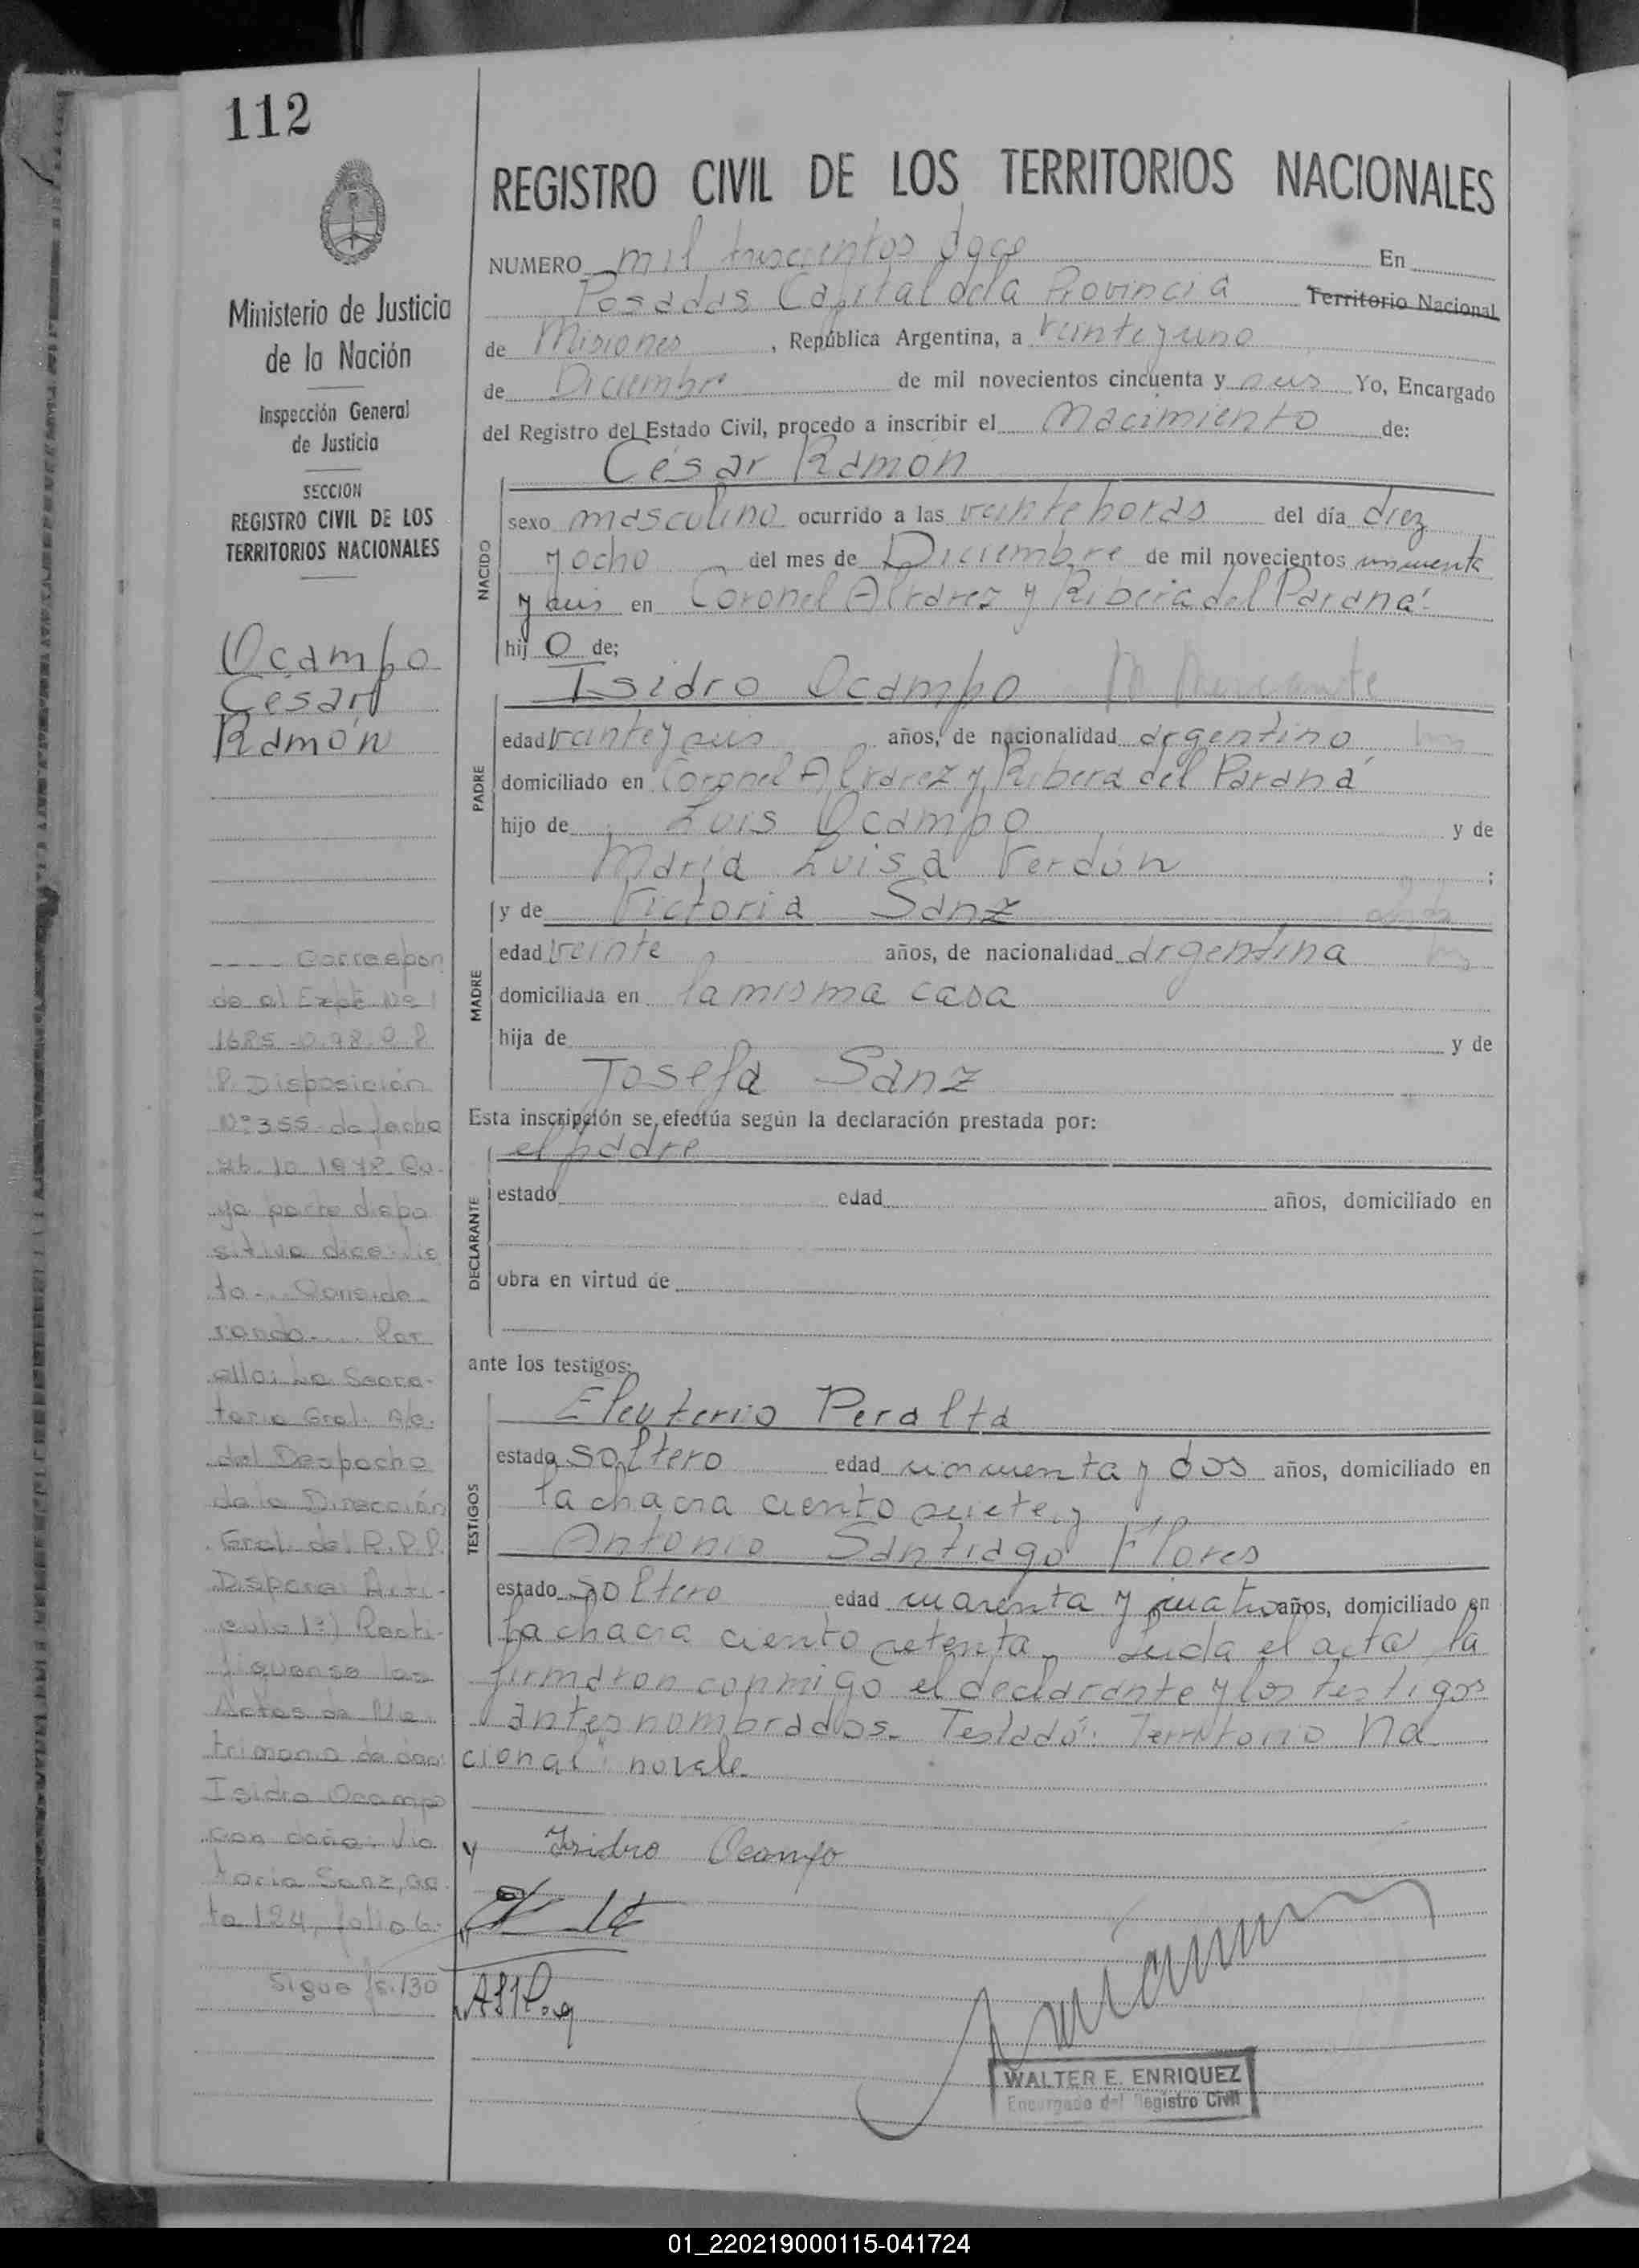 112
Ministerio de Justicia
de la Nación
Inspección General
de Justicia
SECCION
REGISTRO CIVIL DE LOS
TERRITORIOS NACIONALES
Ocampo
César
Ramón
---- Correspon
de al Expte Nº
1685-O-78.R.P
P. Disposición
Nº 355 de fecha
26-10-1978 Cu
ya parte dispo
sitiva dice: Vis
to... Conside
rando.... Por
ello: La Secre-
taria Gral. A/c.
del Despacho
de la Dirección
Gral. del R.P.P.
Dispone: Arti-
culo 1º) Recti-
fiquense las
Actas de Ma
trimonio de don
Isidro Ocampo
con doña: Vic
toria Sanz, ac
ta 124, folio 6-
Sigue fs. 130
REGISTRO CIVIL DE LOS TERRITORIOS NACIONALES
NUMERO mil trescientos doce En
Posadas Capital de la Provincia Territorio Nacional
de Misiones, República Argentina, a veinte y uno
de Diciembre de mil novecientos cincuenta y seis Yo, Encargado
del Registro del Estado Civil, procedo a inscribir el Nacimiento de:
César Ramón
NACIDO
sexo masculino ocurrido a las veinte horas del día diez
y ocho del mes de Diciembre de mil novecientos cincuenta
y seis en Coronel Alvarez y Ribera del Paraná-
hij o de;
Isidro Ocampo
PADRE
edad veinte y seis años, de nacionalidad argentino
domiciliado en Coronel Alvarez y Ribera del Paraná
hijo de Luis Ocampo y de
María Luisa Verdún ;
y de Victoria Sanz
MADRE
edad veinte años, de nacionalidad argentina
domiciliada en la misma casa
hija de y de
Josefa Sanz
Esta inscripción se efectúa según la declaración prestada por:
el padre
DECLARANTE
estado edad años, domiciliado en
obra en virtud de
ante los testigos:
Eleuterio Peralta
TESTIGOS
estado soltero edad cincuenta y dos años, domiciliado en
la chacra ciento siete y
Antonio Santiago Flores
estado soltero edad cuarenta y cuatro años, domiciliado en
la chacra ciento setenta Leida el acta la
firmaron conmigo el declarante y los testigos
antes nombrados. Testado: "Territorio Na
cional" no vale
Isidro Ocampo
WALTER E. ENRIQUEZ
Encargado del Registro Civil
01_220219000115-041724